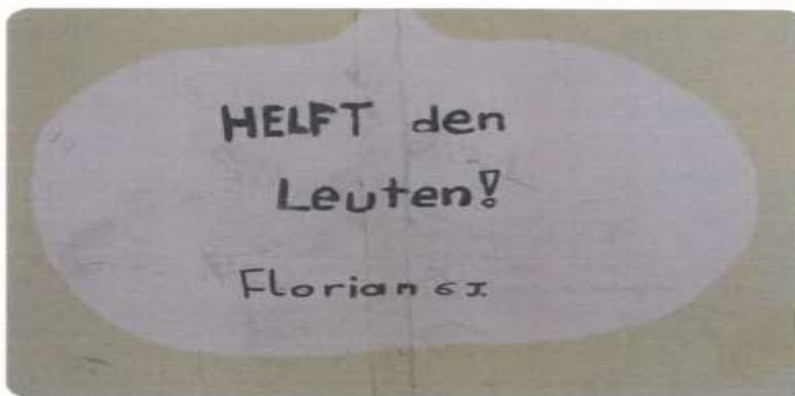 HELFT den
Leuten!
Florian 6I